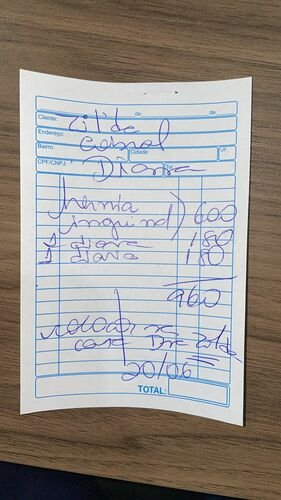 de de
Cliente: Zilda
Endereço: Cabral
Bairro: Cidade: UF:
CPF/CNPJ: Diana Tel.
hernia
inguinal) 600
1 diaria 180
1 diaria 180
960
colocar na
casa Da Zilda
20/06
TOTAL: